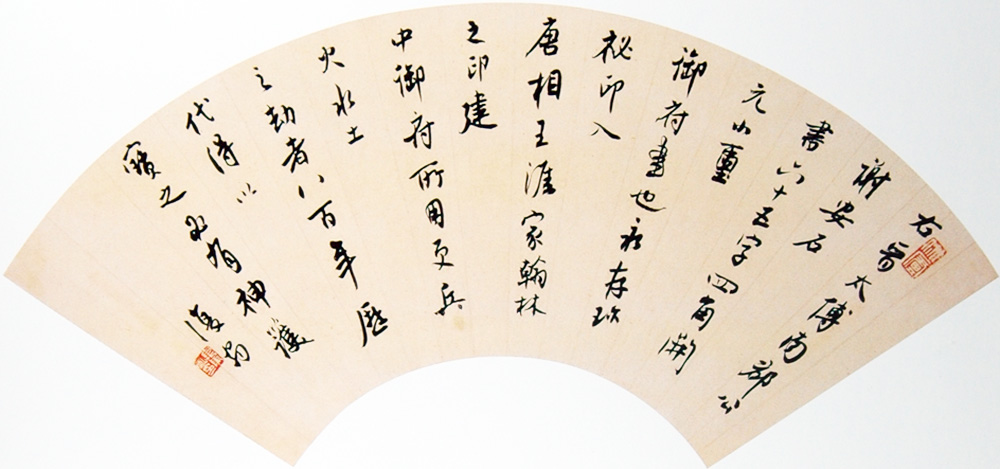 右晉太傅南郡公
謝安石
書六十五字四角開
元小璽
御府書也永存珎
祕印入
唐相王涯家翰林
之印建
中御府所用更兵
火水土
之劫者八百年歷
代得以
寶之必有神護